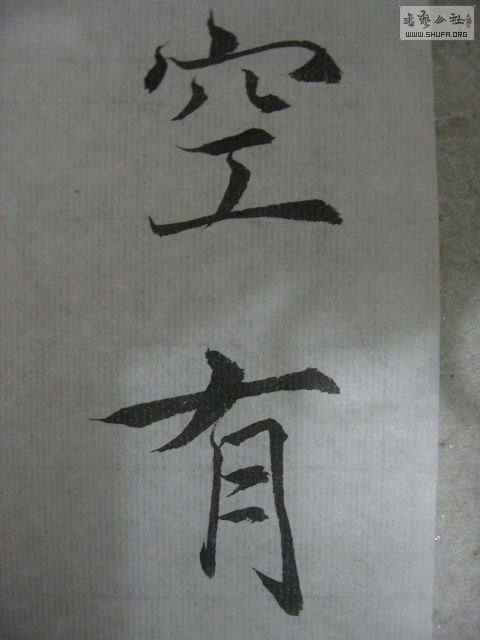 空有
書藝公社
WWW.SHUFA.ORG